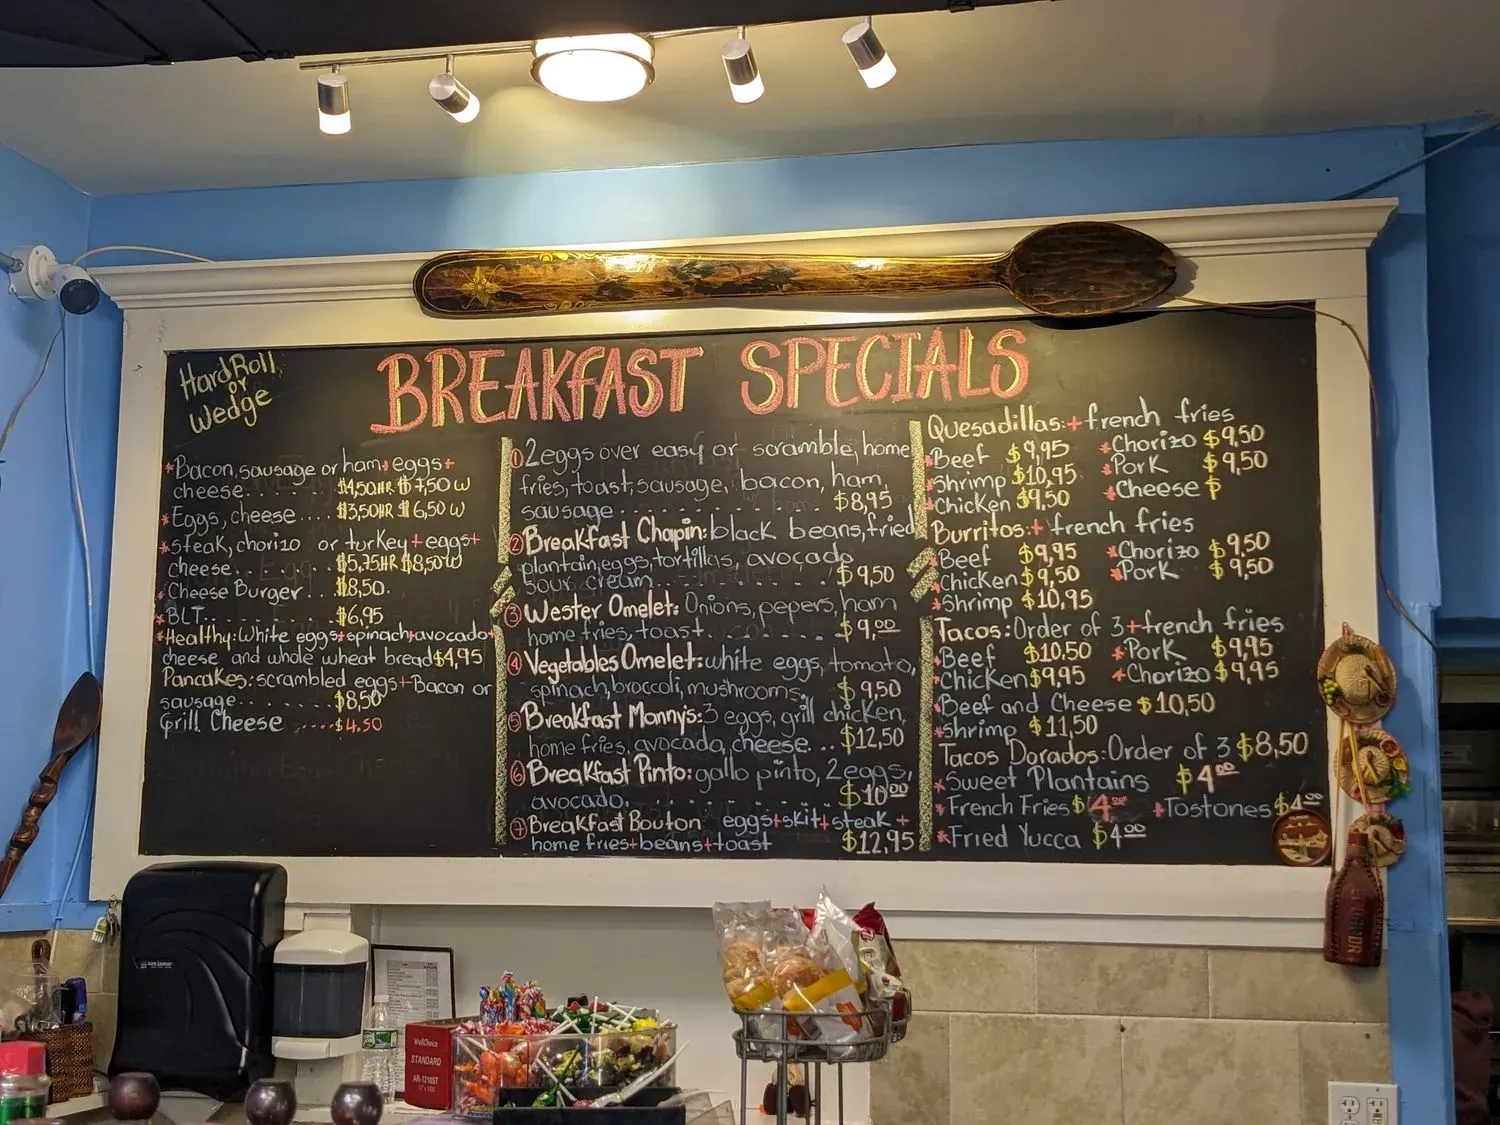 Hard Roll
or
Wedge
BREAKFAST SPECIALS
*Bacon, sausage or ham+eggs+
cheese........ $4,50HR $7,50W
*Eggs, cheese.... $3,50HR $6,50W
*Steak, chorizo or turkey+eggs+
cheese... $5,75HR $8,50W
*Cheese Burger... $8,50.
*BLT........ $6,95
*Healthy: White eggs+spinach+avocado+
cheese and whole wheat bread $4,95
Pancakes: scrambled eggs+Bacon or
sausage........ $8,50
Grill Cheese ..... $4.50
① 2 eggs over easy or scramble, home
fries, toast, sausage, bacon, ham,
sausage........ $8,95
② Breakfast Chapin: black beans, fried
plantain, eggs, tortillas, avocado
sour cream........ $9,50
③ Wester Omelet: Onions, pepers, ham
home fries, toast........ $9,00
④ Vegetables Omelet: white eggs, tomato,
spinach, broccoli, mushrooms, $9,50
⑤ Breakfast Monny's: 3 eggs, grill chicken,
home fries, avocado, cheese... $12,50
⑥ Breakfast Pinto: gallo pinto, 2 eggs,
avocado........ $10 00
⑦ Breakfast Bouton eggs+skit+steak+
home fries+beans+toast $12,95
Quesadillas:+french fries
*Beef $9,95 *Chorizo $9,50
*Shrimp $10,95 *Pork $9,50
*Chicken $9,50 *Cheese $
Burritos:+french fries
*Beef $9,95 *Chorizo $9,50
*Chicken $9,50 *Pork $9,50
*Shrimp $10,95
Tacos: Order of 3+french fries
*Beef $10,50 *Pork $9,95
*Chicken $9,95 *Chorizo $9,95
*Beef and Cheese $10,50
*Shrimp $11,50
Tacos Dorados: Order of 3 $8,50
*Sweet Plantains $4 00
*French Fries $4 00 *Tostones $4 00
*Fried Yucca $4 00
san jamar
WellChoice
STANDARD
AR-1219ST